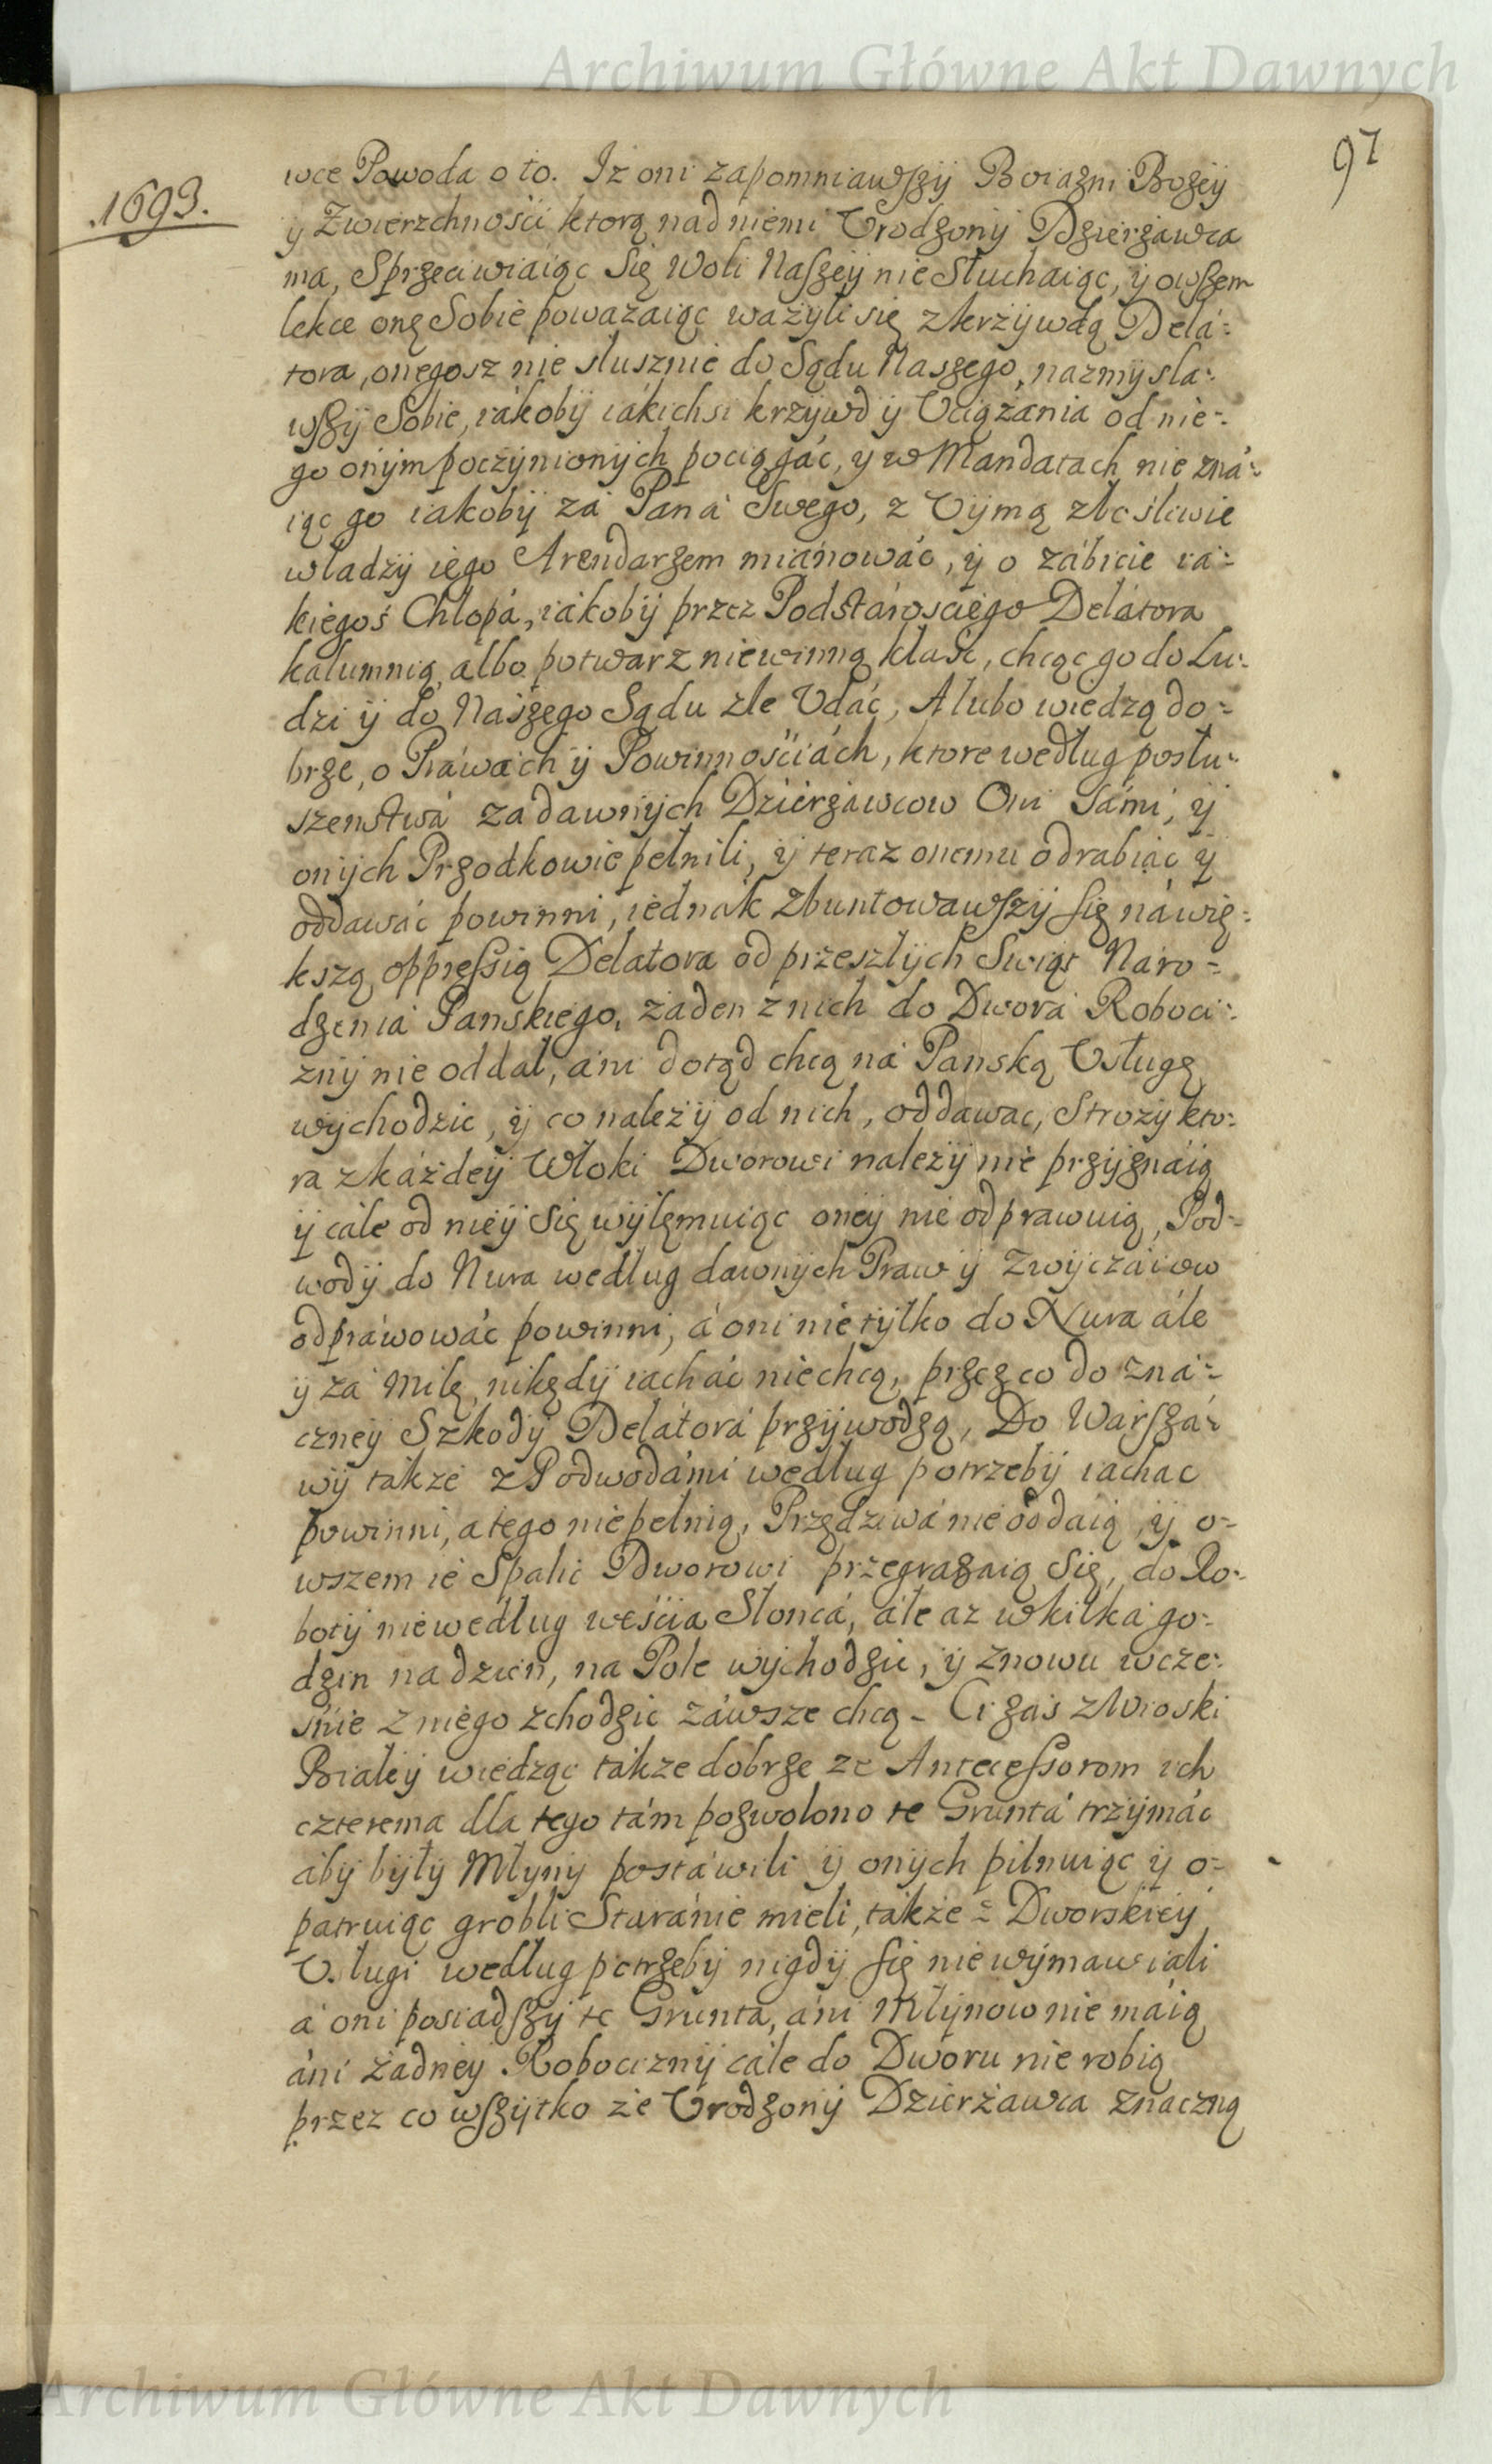 Archiwum Główne Akt Dawnych
97
.1693.
wce Powoda o to. Iz oni zapomniawszy Boiazni Bozey
y Zwierzchnośći ktorą nad niemi Vrodzony Dzierzawca
ma, Sprzeciwiaiąc Się Woli Naszey nie Słuchaiąc, y owszem
lekce onę Sobie powazaiąc wazyli się zkrzywdą Dela=
tora, onegosz nie słusznie do Sądu Naszego, nazmysla=
wszy Sobie, iákoby iákichsi krzywd y Vciązania od nie=
go onym poczynionych pociągáć, y w Mandatach nie zná=
iąc go iakoby zá Paná Swego, z Vymą złośliwie
władzy iego Arendarzem miánowáć, y o zábicie ia=
kiegoś Chłopá, iákoby przez Podstárosciego Delátora
kalumnią albo potwarz niewinną kłaść, chcąc go do Lu=
dzi y do Naszego Sądu zle Vdáć, A lubo wiedzą do=
brze, o Práwách y Powinnośćiách, ktore według posłu=
szenstwá za dawnych Dzierzawcow Oni Sámi, y
onych Przodkowie pełnili, y teraz onemu odrabiáć y
oddawáć powinni, iednák zbuntowawszy się ná wię=
kszą oppressią Delatora od przeszłych Swiąt Náro=
dzenia Panskiego, żaden z nich do Dworá Roboci=
zny nie oddał, ani dotąd chcą ná Panską Vsługę
wychodzic, y co nalezy od nich, oddawac, Strozy kto=
ra zkáżdey Włoki Dworowi nalezy nie przyznáią
y cále od niey Się wyłęmuiąc oney nie odprawuią, Pod=
wody do Nura według dawnych Praw y Zwyczáiow
odpráwowáć powinni, á oni nie tylko do Nura ále
y zá Milę nikędy iacháć niechcą, przez co do zná=
czney Szkody Delátorá przywodzą, Do Warszá=
wy także z Podwodámi według potrzeby iachac
powinni, a tego nie pełnią, Przędziwá nie oddaią, y o=
wszem ie Spalić Dworowi przegrazaią Się, do Ro=
boty nie według weśćia Słoncá, ále az w kilká go=
dzin na dzień, na Pole wychodzić, y znowu wcze=
śnie z niego zchodzić záwsze chcą – Ci zaś z Wioski
Białey wiedząc także dobrze ze Antecessorom ich
czterema dla tego tám pozwolono te Gruntá trzymáć
áby były Młyny postáwili y onych pilnuiąc y o=
patruiąc grobli Staránie mieli, także = Dworskiey
Vsługi według potrzeby nigdy się nie wymawiali
á oni posiadszy te Grunta, áni Młynow nie máią
áni żadney Robocizny cále do Dworu nie robią
przez co wszytko że Vrodzony Dzierżawca znaczną
Archiwum Główne Akt Dawnych